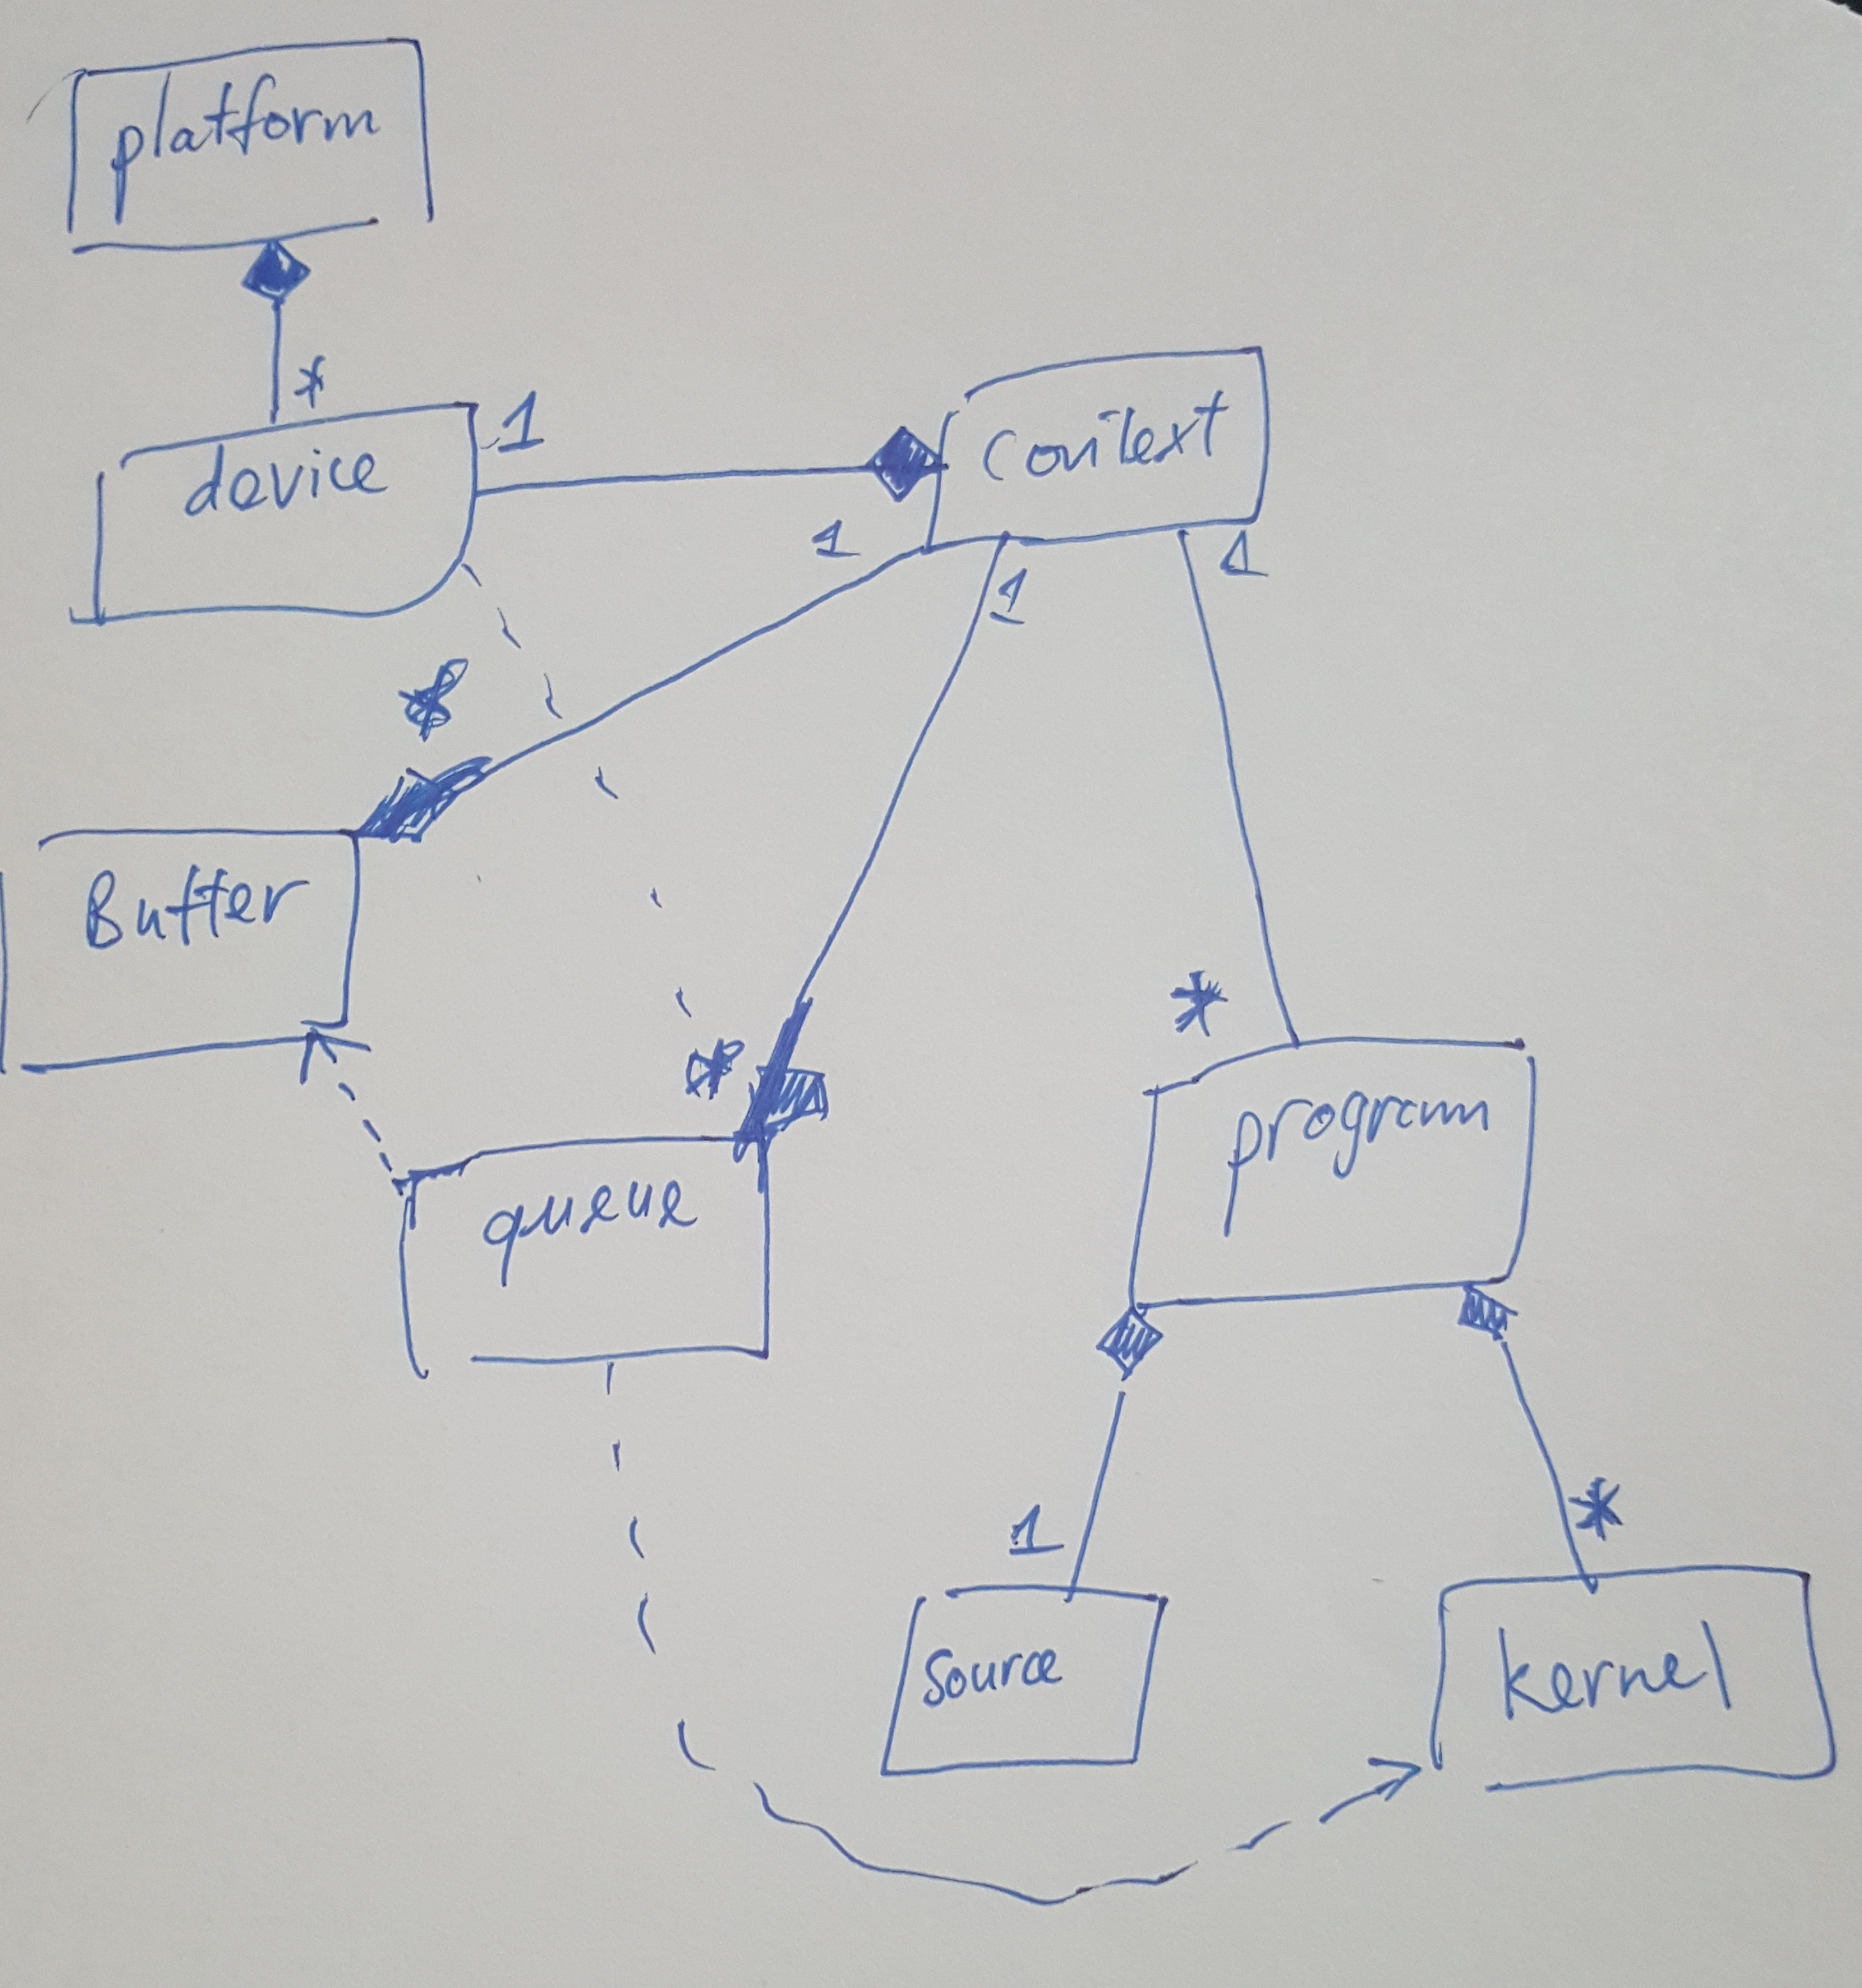 platform
*
device
1
context
1
1
1
*
Buffer
*
*
queue
program
1
*
Source
kernel